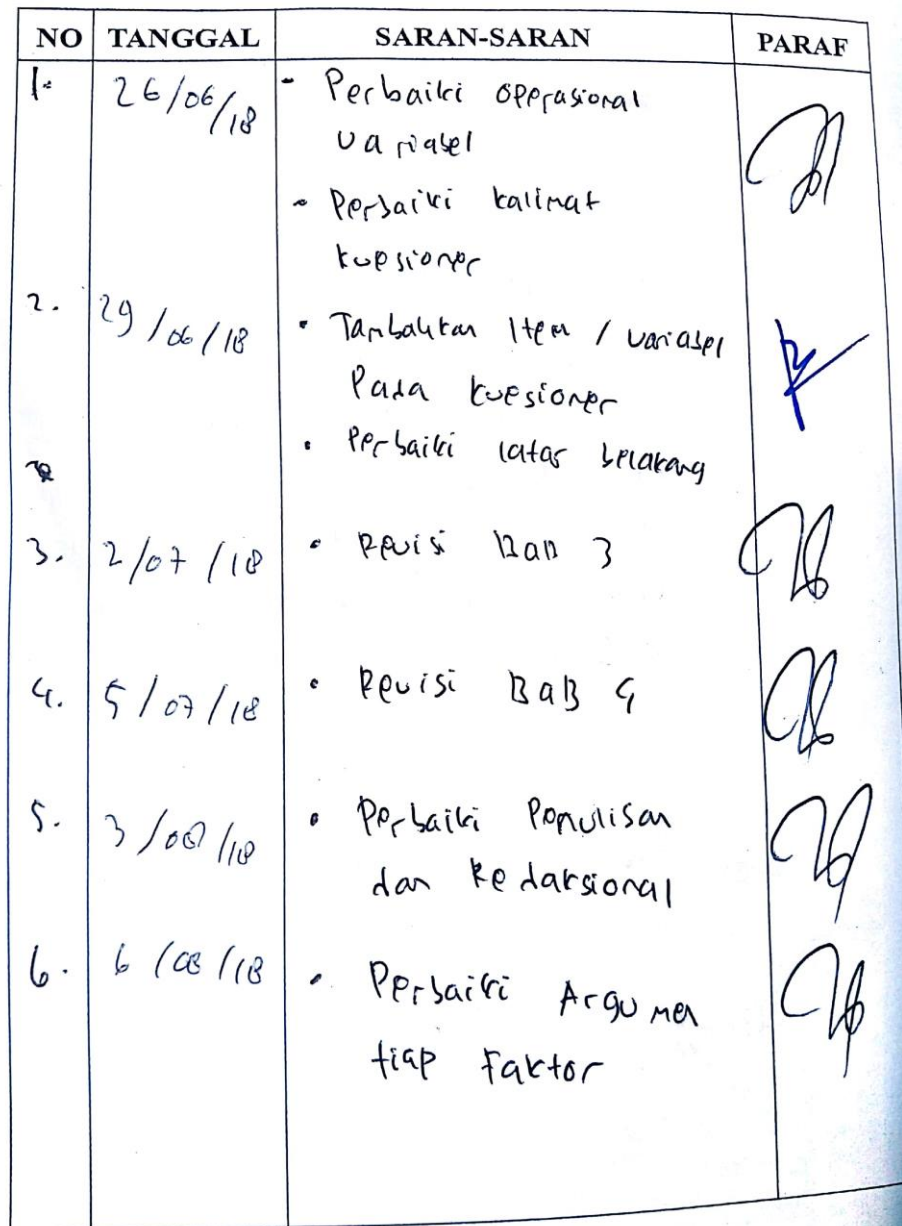 NO TANGGAL SARAN-SARAN PARAF
1. 26/06/18 - Perbaiki operasional
variabel
- Perbaiki kalimat
kuesioner
2. 29/06/18 • Tambahkan Item / variabel
Pada kuesioner
• Perbaiki latar belakang
3. 2/07/18 • Revisi BaB 3
4. 5/07/18 • Revisi BaB 4
5. 3/08/18 • Perbaiki Penulisan
dan Redaksional
6. 6/08/18 • Perbaiki Argumen
tiap Faktor